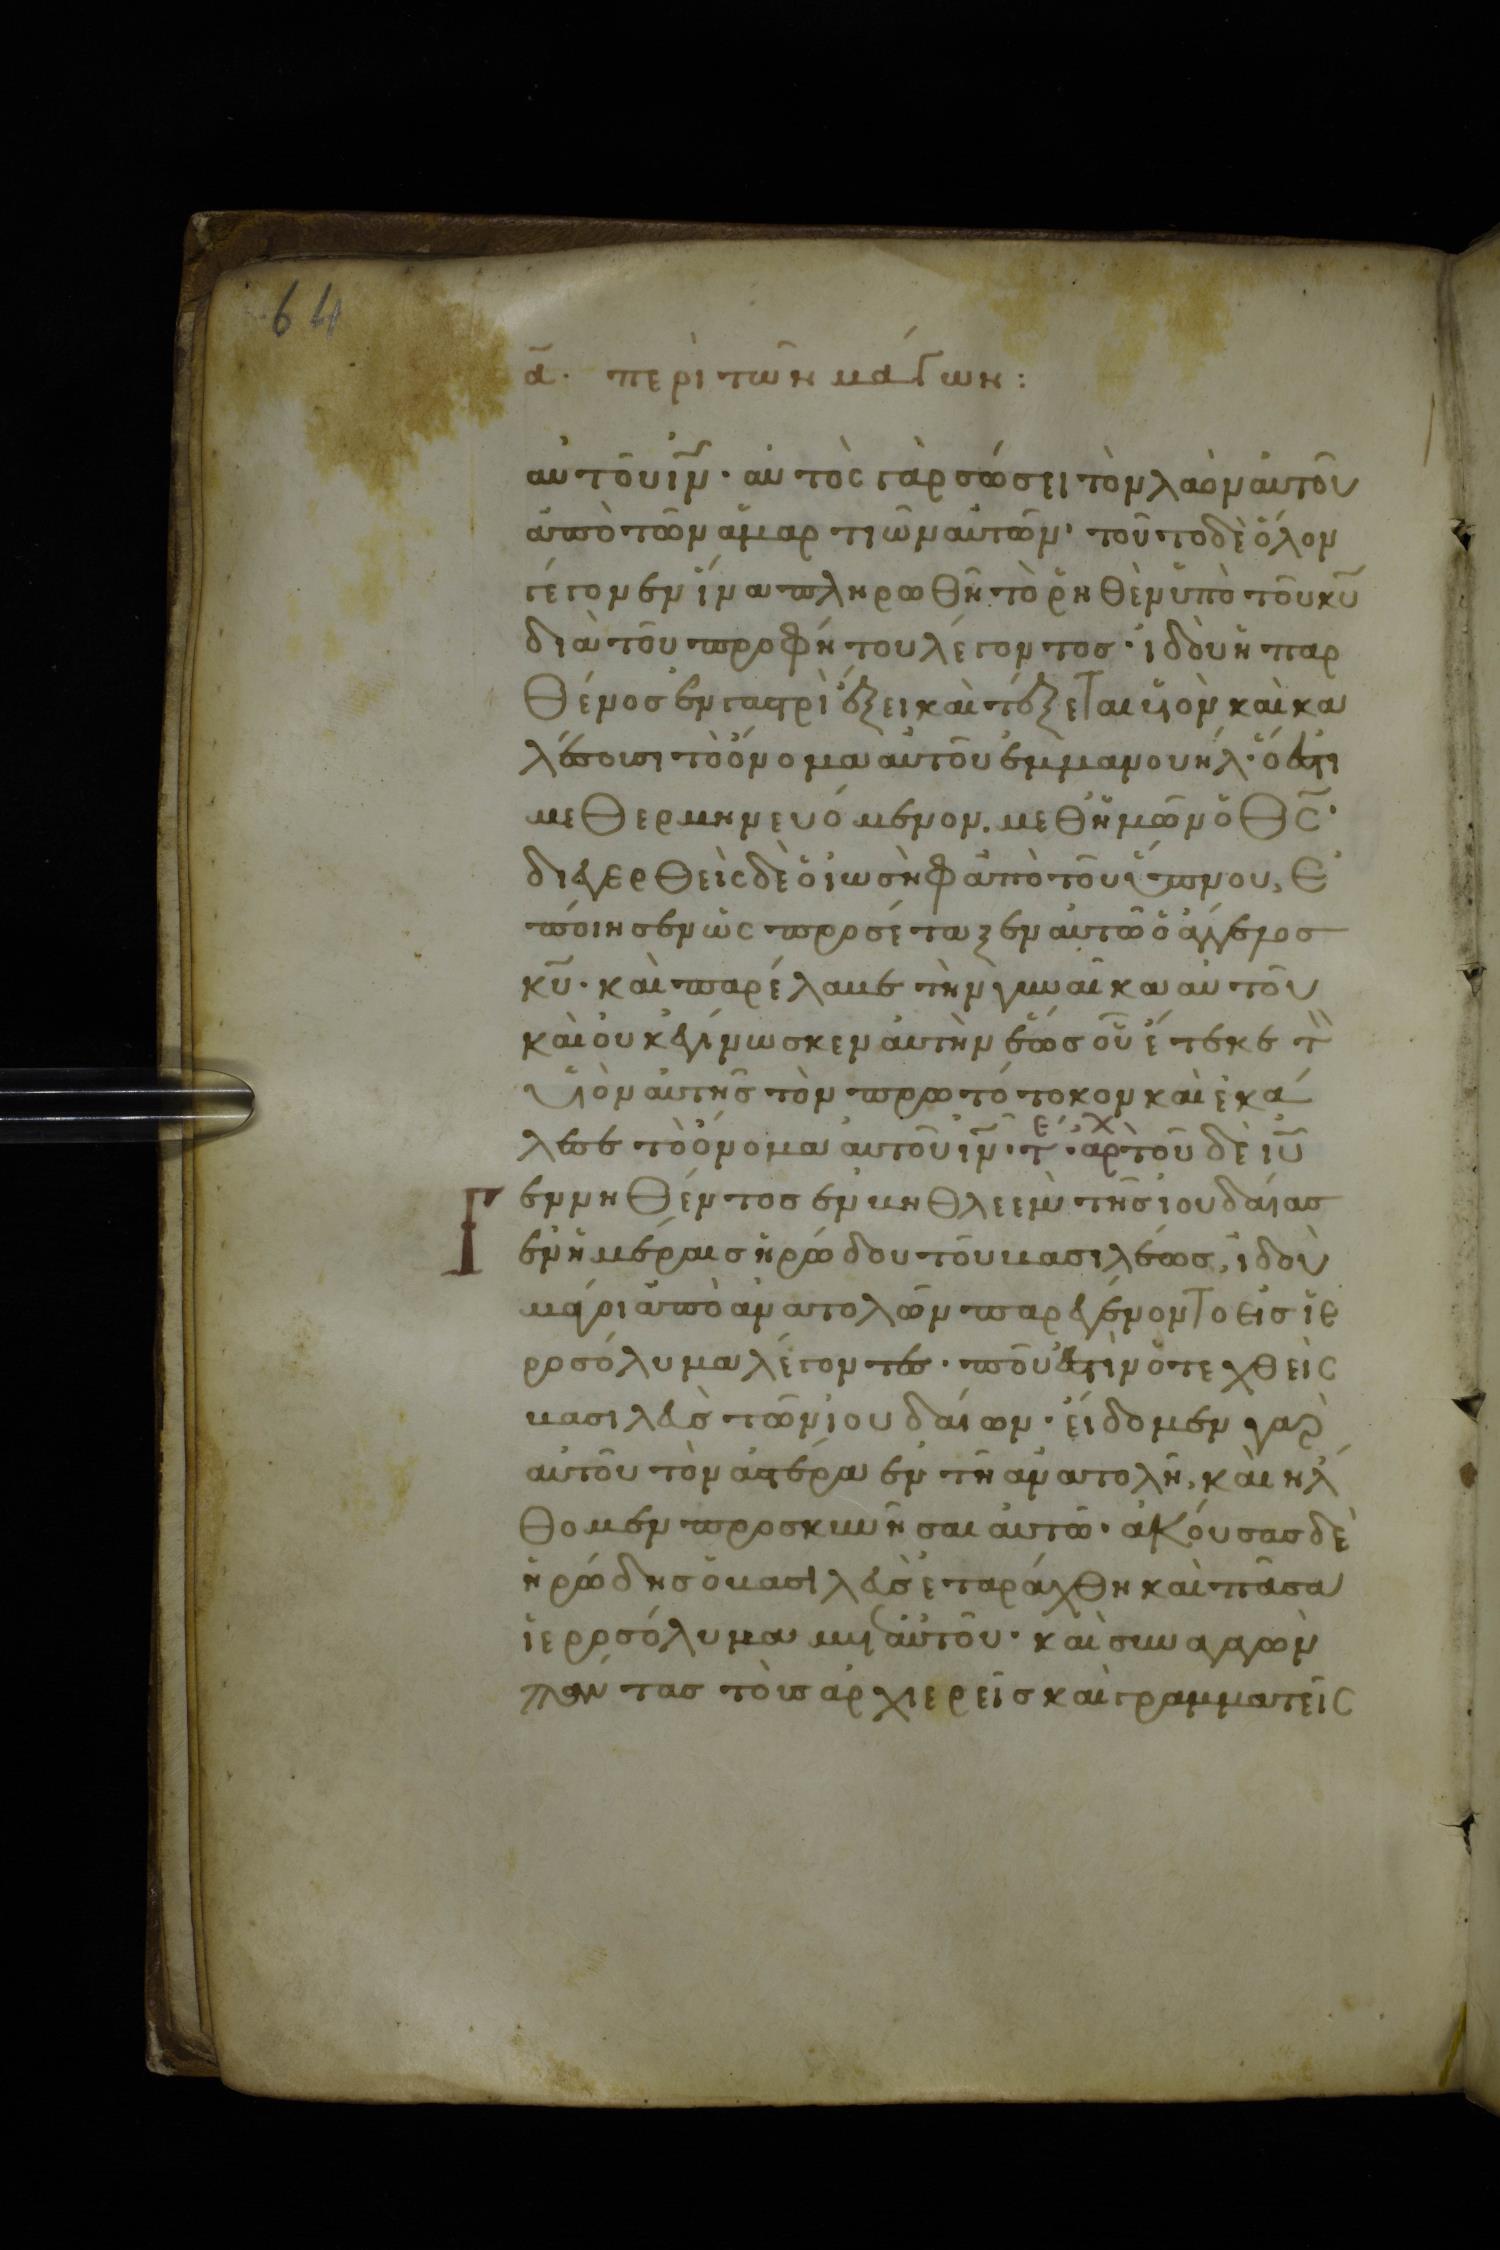 64
α̅· περὶ τῶν μάγων:
αὐτοῦ ἰν̅· αὐτὸς γὰρ σώσει τὸν λαὸν αὐτοῦ
ἀπὸ τῶν ἁμαρτιῶν αὐτῶν· τοῦτο δὲ ὅλον
γέγονεν ἵνα πληρωθῆ τὸ ῥηθὲν ὑπὸ τοῦ κυ̅
διὰ τοῦ προφήτου λέγοντος· ἰδοὺ ἡ παρ
θένος ἐν γαστρὶ ἕξει καὶ τέξεται υἱὸν καὶ κα
λέσουσι τὸ ὄνομα αὐτοῦ ἐμμανουήλ· ὅ ἐστι
μεθερμηνευόμενον. μεθ' ἡμῶν ὁ θς̅·
διεγερθεὶς δὲ ὁ ἰωσὴφ ἀπὸ τοῦ ὕπνου, ἐ
ποίησεν ὡς προσέταξεν αὐτῶ ὁ ἄγγελος
κυ̅· καὶ παρέλαβε τὴν γυναῖκα αὐτοῦ
καὶ οὐκ ἐγίνωσκεν αὐτὴν ἕως οὗ ἔτεκε τ
υἱὸν αὐτῆς τὸν πρωτότοκον καὶ ἐκά
λεσε τὸ ὄνομα αὐτοῦ ἰν̅· τε· αρχ τοῦ δὲ ἰυ̅
Γ εννηθέντος ἐν βηθλεὲμ τῆς ἰουδαίας
ἐν ἡμέραις ἡρώδου τοῦ βασιλέως, ἰδοὺ
μάγοι ἀπὸ ἀνατολῶν παρεγένοντο εἰς ἱε
ροσόλυμα λέγοντες· ποῦ ἐστὶν ὁ τεχθεὶς
βασιλεὺς τῶν ἰουδαίων· εἴδομεν γὰρ
αὐτοῦ τὸν ἀστέρα ἐν τῆ ἀνατολῆ, καὶ ἤλ
θομεν προσκυνῆσαι αὐτῶ· ἀκούσας δὲ
ἡρώδης ὁ βασιλεὺς ἐταράχθη καὶ πᾶσα
ἱεροσόλυμα μετ' αὐτοῦ· καὶ συναγαγὼν
πάντας τοὺς ἀρχιερεῖς καὶ γραμματεῖς